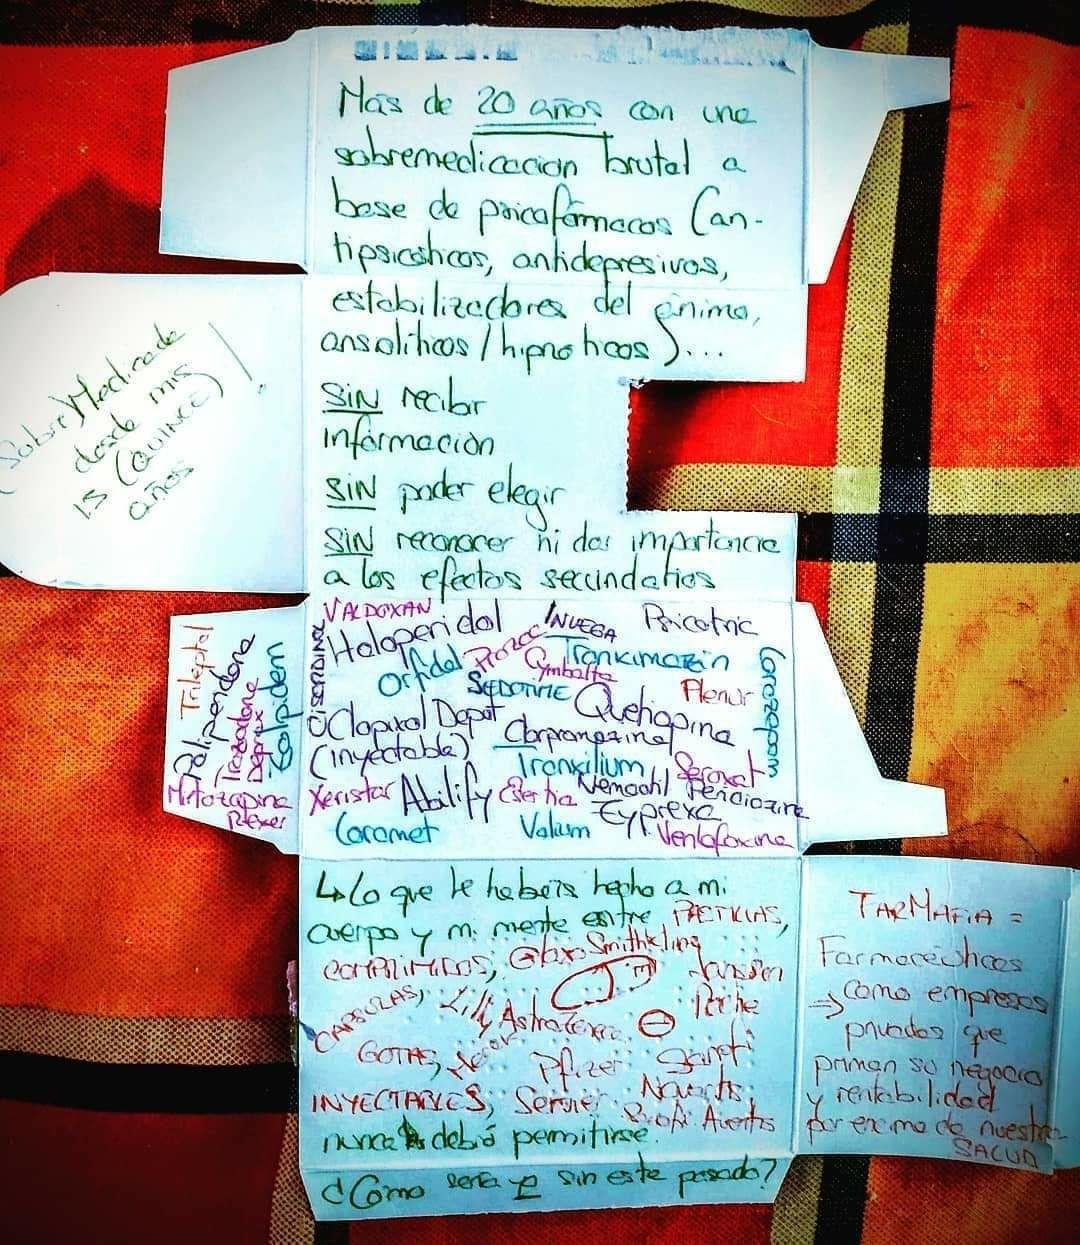 Más de 20 años con una
sobremedicación brutal a
base de psicofármacos (an-
tipsicóticos, antidepresivos,
estabilizadores del ánimo,
ansolíticos / hipnóticos)...
SIN recibir
información
SIN poder elegir
SIN reconocer ni dar importancia
a los efectos secundarios
(Sobre) Medicada
desde mis
15 (QUINCE)
años !
VALDOXAN
Haloperidol
INVEGA
Psicotric
Orfidal
Prozac
Cymbalta
Trankimazin
Lorazepam
CISORDINOL
SEDOTIME
Plenur
Clopixol Depot
(inyectable)
Quetiapina
Clorpromazina
Tranxilium
Seroxat
Xeristar
Abilify
Esertia
Nemactil
Periciazina
Zyprexa
Caramet
Valium
Venlafaxina
Trileptal
Paliperidona
Trazodona
Deprax
Zolpidem
Mirtazapina
Rexer
↳ Lo que le habéis hecho a mi
cuerpo y mi mente entre PASTILLAS,
COMPRIMIDOS, Glaxo Smithkling
Janssen
CÁPSULAS, Lilly AstraZeneca
Roche
GOTAS, Pfizer Sanofi
INYECTABLES, Servier Novartis,
Sanofi Aventis
nunca debió permitirse.
¿Cómo sería yo sin este pasado?
TARMAFIA =
Farmacéuticas
⇒ como empresas
privadas que
priman su negocio
y rentabilidad
por encima de nuestra
SALUD